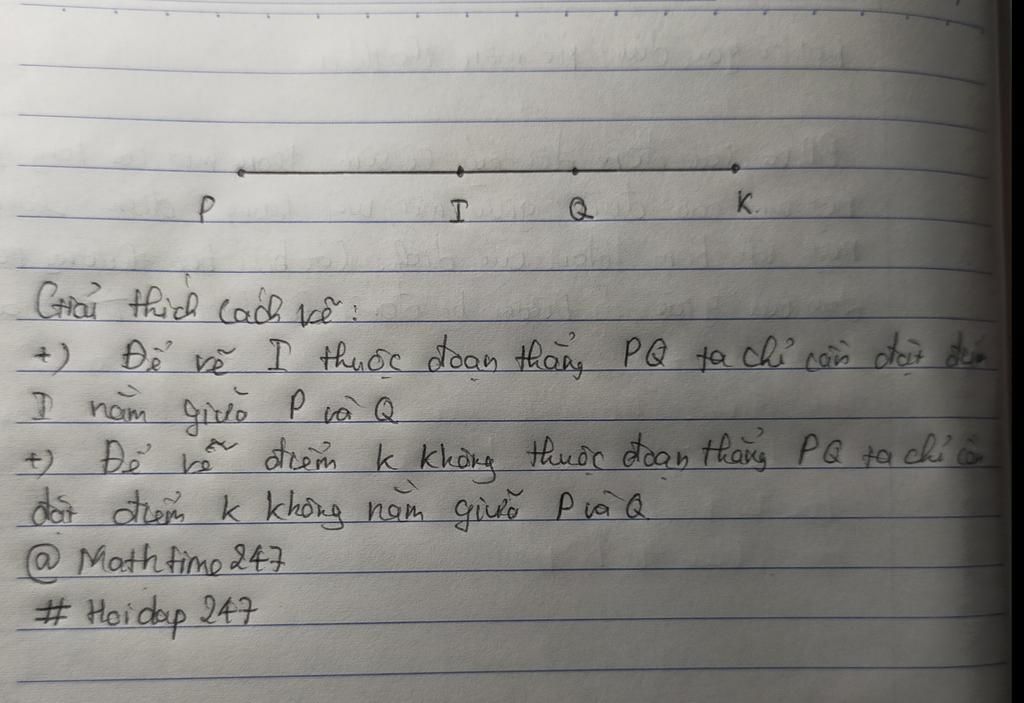 P I Q K
Giải thích cách vẽ:
+) Để vẽ I thuộc đoạn thẳng PQ ta chỉ cần đặt điểm
I nằm giữa P và Q
+) Để vẽ điểm k không thuộc đoạn thẳng PQ ta chỉ cần
đặt điểm k không nằm giữa P và Q
@ Mathtime 247
# Hoidap 247